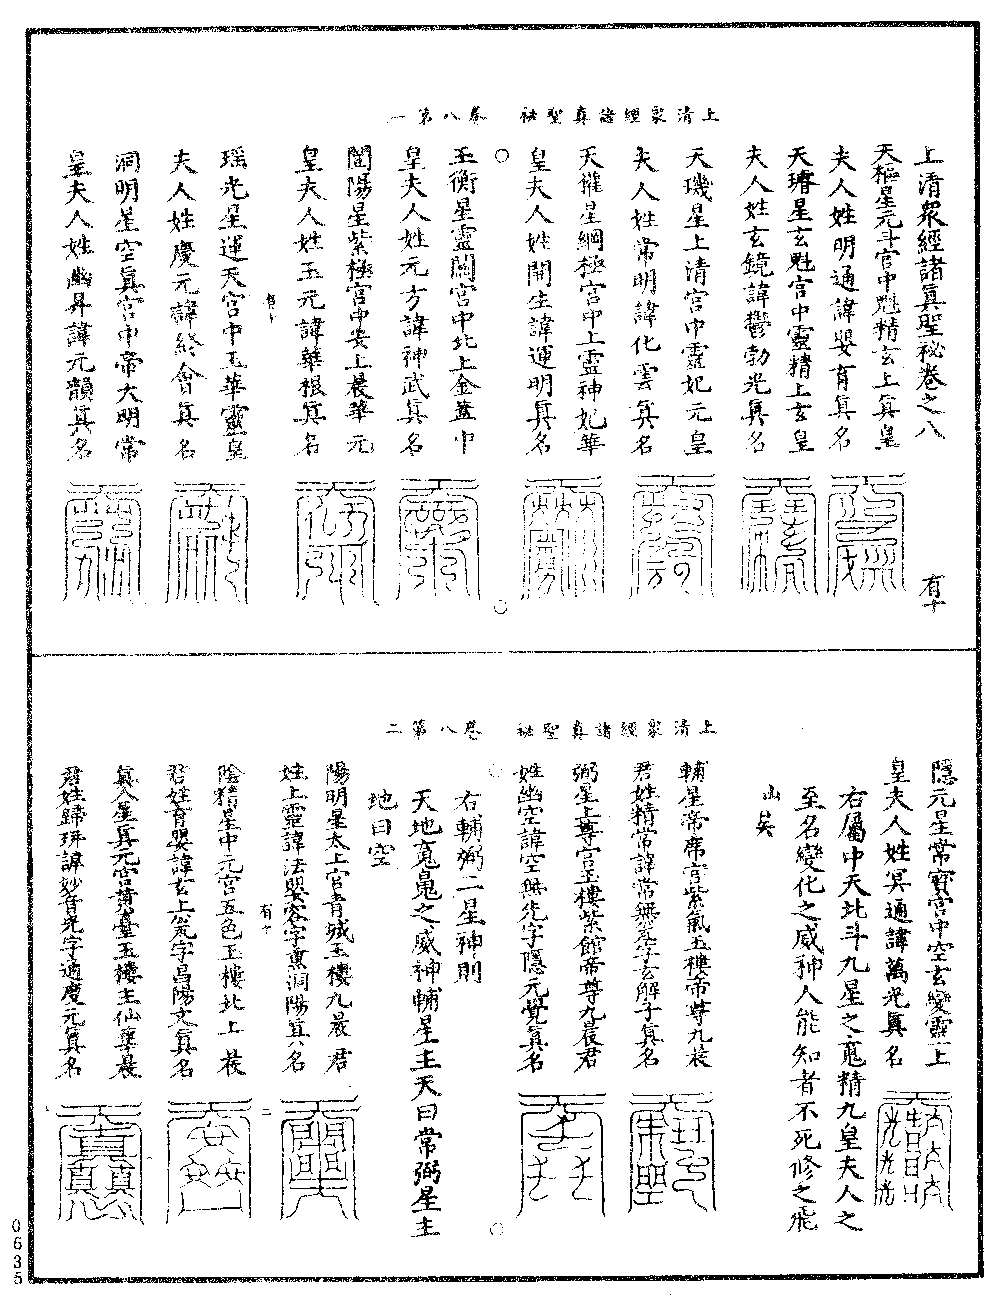 上清眾經諸真聖祕　卷八第一
上清眾經諸眞聖祕卷之八
有十
天樞星元斗宮中魁精玄上眞皇
夫人姓明通諱嬰育眞名
天璿星玄魁宮中靈精上玄皇
夫人姓玄鏡諱鬱勃光眞名
天璣星上清宮中靈妃元皇
夫人姓常明諱化雲眞名
天權星綱極宮中上靈神妃華
皇夫人姓開生諱運明眞名
玉衡星靈關宮中北上金蓋中
皇夫人姓元方諱神武眞名
闓陽星紫極宮中安上晨華元
皇夫人姓玉元諱華根眞名
瑤光星運天宮中玉華靈皇
夫人姓慶元諱終會眞名
洞明星空眞宮中帝大明常
皇夫人姓幽昇諱元韻眞名
上清眾經諸真聖祕　卷八第二
隱元星常寶宮中空玄變靈上
皇夫人姓冥通諱萬光眞名
右屬中天北斗九星之䰟精九皇夫人之
至名變化之威神人能知者不死修之飛
山矣
輔星帝席宮紫氣玉樓帝尊九晨
君姓精常諱常無䒶字玄解子眞名
弼星上尊宮玉樓紫館帝尊九晨君
姓幽空諱空無先字隱元覺眞名
右輔弼二星神則
天地䰟䰟之威神輔星主天曰常弼星主
地曰空
陽明星太上宮青城玉樓九晨君
姓上靈諱法嬰容字熏洞陽眞名
陰精星中元宮五色玉樓北上晨
君姓育嬰諱玄上䒶字昌陽文眞名
眞人星眞元宮黃臺玉樓主仙華晨
君姓歸玤諱妙音光字適度元眞名
0635